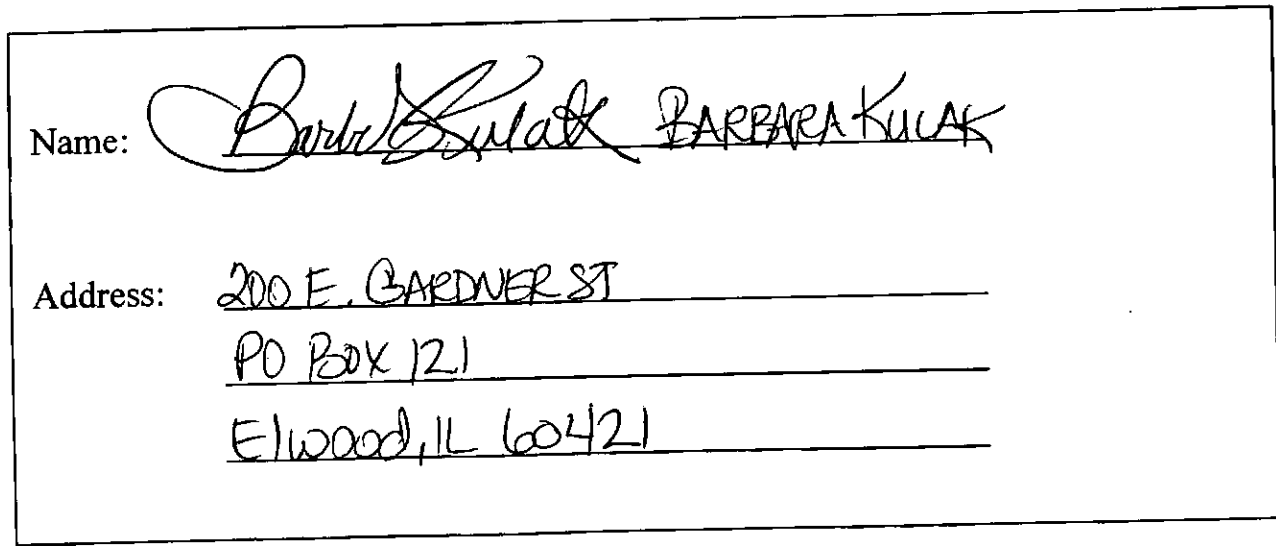 Name: Barb Kulak BARBARA KULAK
Address: 200 E. GARDNER ST
PO BOX 121
Elwood, IL 60421